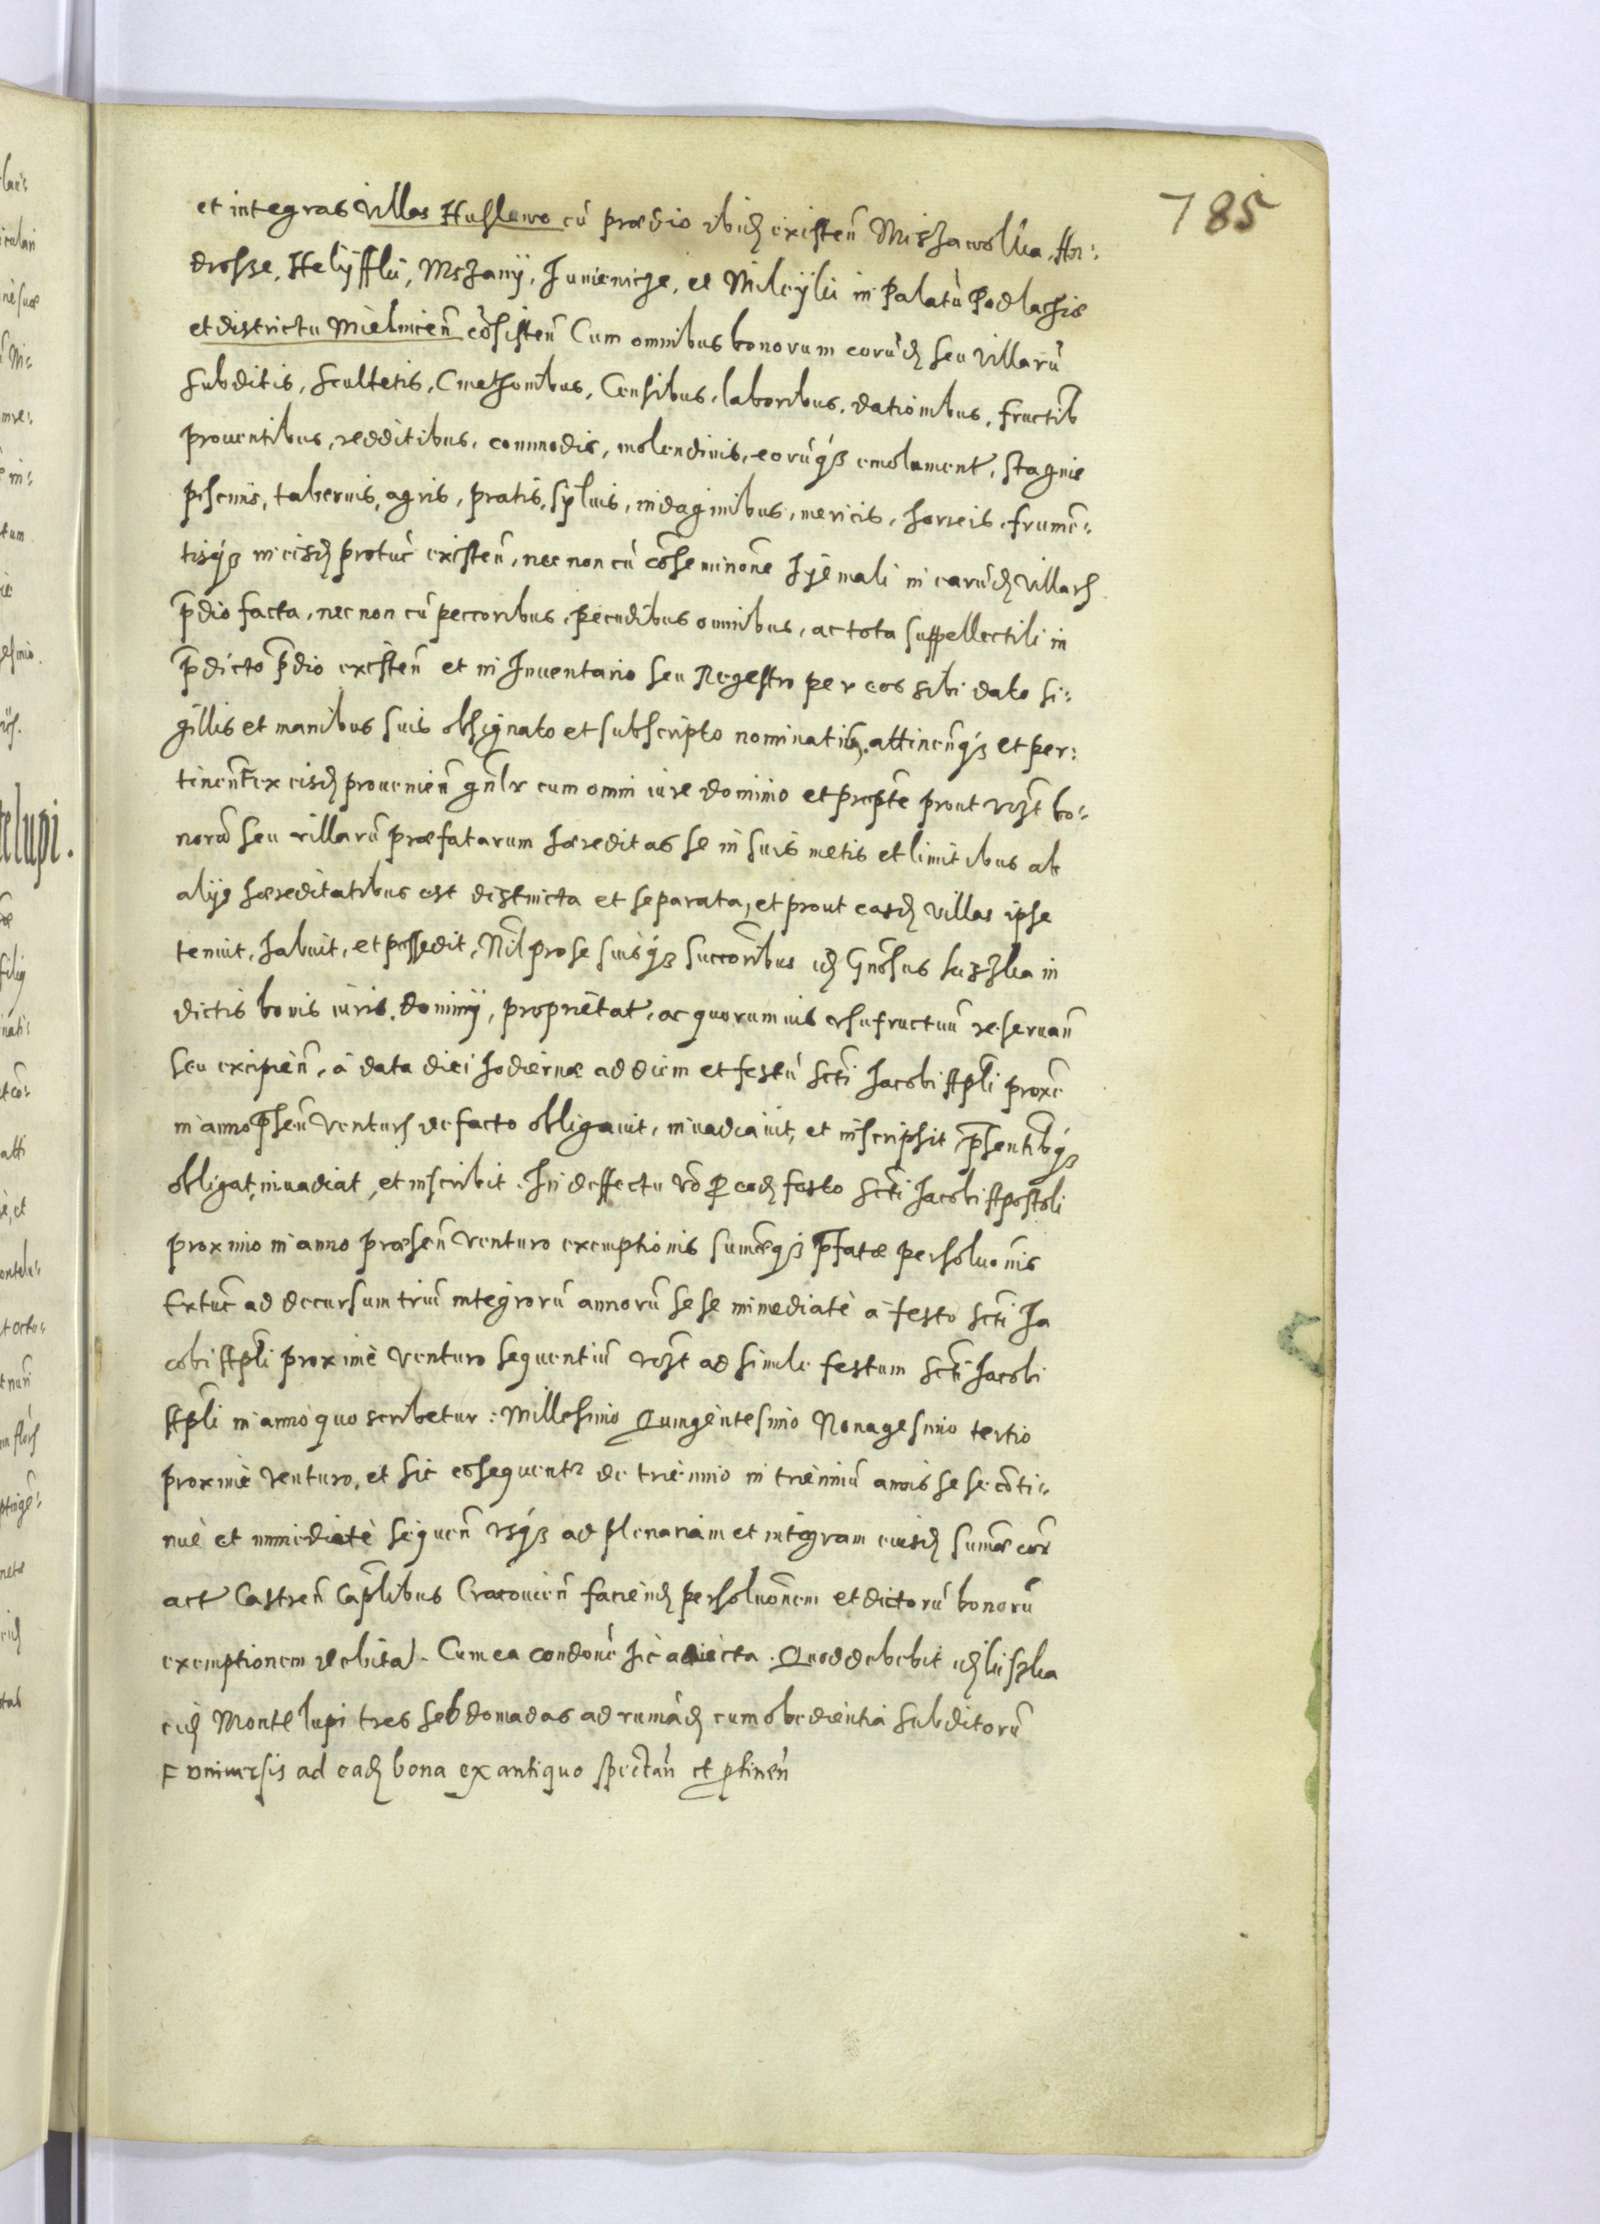 785
et integras villas Huslewo cũ prædio ibid existeñ Miszawolka, Ho:
drosze, Helijfflu, Mszanij, Junienicze, et Mileijki in Palatũ Podlachiæ
et districtu Mielniceñ cõsisteñ Cum omnibus bonorum eorũd seu villarũ
subditis, scultetis, Cmethonibus, Censibus, laboribus, dationibus, fructib
prouentibus, redditibus, commodis, molendinis, eorũq3 emolument, stagnis
piscinis, tabernis, agris, pratis, syluis, indaginibus, mericis, horreis, frumẽ:
tisq3 in eisd protũc existeñ, nec non cũ cõseminõne hyemali in earũd villar
p̃dio facta, nec non cũ peccoribus, pecudibus omnibus, ac tota suppellectili in
p̃dicto p̃dio existeñ et in Inuentario seu Regestro per eos sibi dato si:
gillis et manibus suis obsignato et subscripto nominatis, attineñq3 et per:
tineñ ex eisd prouenieñ gñlr cum omni iure dominio et propte prout bo:
norũ seu villarũ præfatarum hæreditas se in suis metis et limitibus ab
alijs hæreditatibus est distincta et separata, et prout easd villas ipse
tenuit, habuit, et possedit, Nil pro se suisq3 succoribus id Gñosus in
dictis bonis iuris, dominij, proprietat, ac quorumuis vsufructuũ reseruañ
seu excipieñ, à data diei hodiernæ ad diem et festũ Scti Jacobi Apli proxe
in anno p̃señ ventur de facto obligauit, inuadiauit, et inscripsit p̃sentibq3
obligat, inuadiat, et inscribit. In deffectu vo p eod festo Scti Jacobi Apostoli
proximo in anno præseñ venturo exemptionis sumæq3 p̃fatæ persoluonis
Extũc ad decursum triũ integrorũ annorũ sese immediatè à festo Scti Ja
cobi Apli proximè venturo sequentiũ ad simile festum Scti Jacobi
Apli in anno quo scribetur: Millesimo Quingentesimo Nonagesimo tertio
proximè venturo, et sic cõsequentr de triennio in trienniũ annis sese cõti:
nuè et immediatè sequeñ vsq3 ad plenariam et integram eiusd sumæ cor
act Castreñ Caplibus Cracouieñ faciend persoluõnem et dictorũ bonorũ
exemptionem debitã. Cum ea condone hic adiecta. Quod debebit id
eid Montelupi tres sebdomadas ad rumãd cum obedientia subditorũ
F vniuersis ad ead bona ex antiquo spectañ et ptineñ